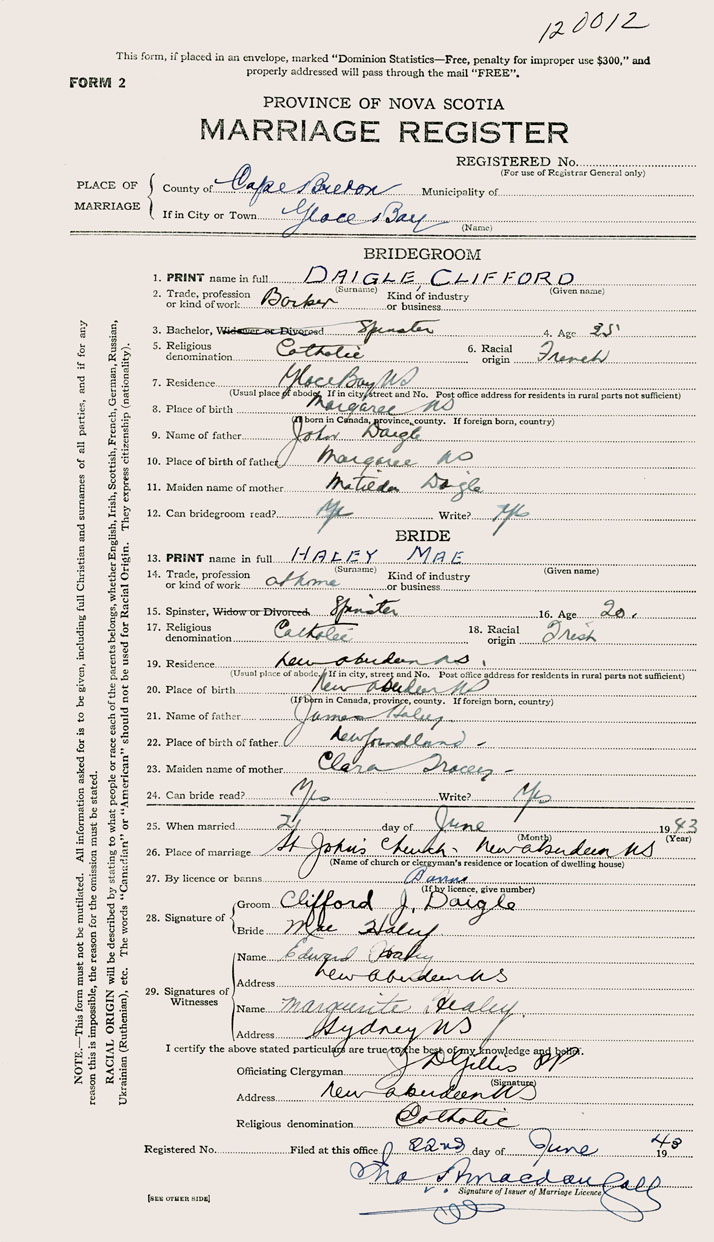 120012
This form, if placed in an envelope, marked “Dominion Statistics—Free, penalty for improper use $300,” and
properly addressed will pass through the mail “FREE”.
FORM 2
PROVINCE OF NOVA SCOTIA
MARRIAGE REGISTER
REGISTERED No.
(For use of Registrar General only)
PLACE OF MARRIAGE
County of Cape Breton Municipality of
If in City or Town Glace Bay
(Name)
BRIDEGROOM
1. PRINT name in full DAIGLE, CLIFFORD
(Surname) (Given name)
2. Trade, profession or kind of work Kind of industry or business
3. Bachelor, Widower or Divorced Spinster 4. Age 25
5. Religious denomination Catholic 6. Racial origin French
7. Residence Glace Bay NS
(Usual place of abode. If in city, street and No. Post office address for residents in rural parts not sufficient)
8. Place of birth Margaree NS
(If born in Canada, province, county. If foreign born, country)
9. Name of father John Daigle
10. Place of birth of father Margaree NS
11. Maiden name of mother Matilda Daigle
12. Can bridegroom read? Yes Write? Yes
BRIDE
13. PRINT name in full HALEY MAE
(Surname) (Given name)
14. Trade, profession or kind of work at home Kind of industry or business
15. Spinster, Widow or Divorced Spinster 16. Age 20.
17. Religious denomination Catholic 18. Racial origin Irish
19. Residence New Aberdeen NS.
(Usual place of abode. If in city, street and No. Post office address for residents in rural parts not sufficient)
20. Place of birth New Aberdeen NS
(If born in Canada, province, county. If foreign born, country)
21. Name of father James Haley
22. Place of birth of father Newfoundland -
23. Maiden name of mother Clara Tracey -
24. Can bride read? Yes Write? Yes
25. When married 21 day of June 1943
(Month) (Year)
26. Place of marriage St John's Church - New Aberdeen NS
(Name of church or clergyman's residence or location of dwelling house)
27. By licence or banns Banns
(If by licence, give number)
28. Signature of
Groom Clifford J. Daigle
Bride Mae Haley
29. Signatures of Witnesses
Name Edward Haley
Address New Aberdeen NS
Name Marguerite Healey
Address Sydney NS
I certify the above stated particulars are true to the best of my knowledge and belief.
Officiating Clergyman J D Gillis PP
(Signature)
Address New Aberdeen NS
Religious denomination Catholic
Registered No. Filed at this office 22nd day of June 1943
Signature of Issuer of Marriage Licence
[SEE OTHER SIDE]
NOTE.—This form must not be mutilated. All information asked for is to be given, including full Christian and surnames of all parties, and if for any
reason this is impossible, the reason for the omission must be stated.
RACIAL ORIGIN will be described by stating to what people or race each of the parents belongs, whether English, Irish, Scottish, French, German, Russian,
Ukrainian (Ruthenian), etc. The words “Canadian” or “American” should not be used for Racial Origin. They express citizenship (nationality).